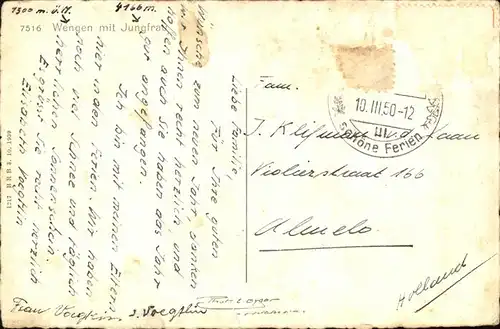 1300 m. ü. M. 4166 m.
7516 Wengen mit Jungfrau
Liebe Familie,
Für Ihre guten
Wünsche zum neuen Jahr danken
wir Ihnen recht herzlich, und
hoffen auch Sie haben das Jahr
gut angefangen.
Ich bin mit meinen Eltern
hier in den Ferien. Wir haben
noch viel Schnee und täglich
herrlichen Sonnenschein.
Es grüsst Sie recht herzlich
Elisabeth Voegtlin
Frau Voegtlin
10. III. 50 - 12
schöne Ferien
Fam.
Violierstraat 166
Almelo
Holland